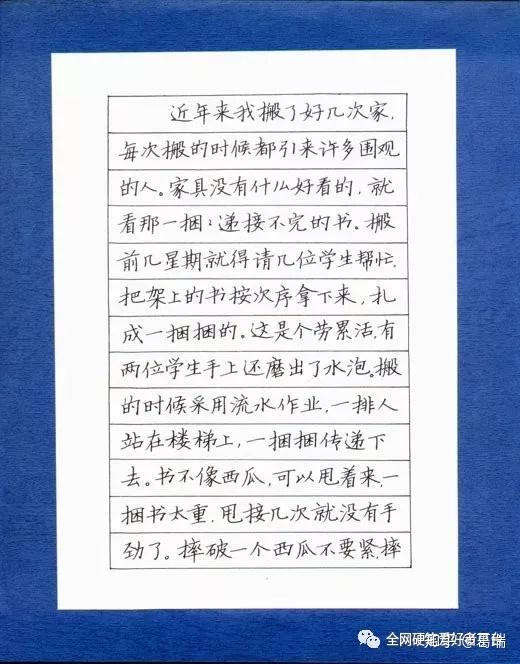 近年来我搬了好几次家,
每次搬的时候都引来许多围观
的人。家具没有什么好看的,就
看那一捆;递接不完的书。搬
前几星期就得请几位学生帮忙,
把架上的书按次序拿下来,扎
成一捆捆的。这是个劳累活,有
两位学生手上还磨出了水泡。搬
的时候采用流水作业,一排人
站在楼梯上,一捆捆传递下
去。书不像西瓜,可以甩着来,一
捆书太重,甩接几次就没有手
劲了。摔破一个西瓜不要紧,摔
全网硬笔爱好者平台
知乎 @葛瑞